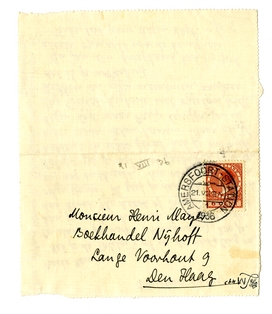 21 VIII 36
AMERSFOORT-STATION
1936
Monsieur Henri Mayer
Boekhandel Nijhoff
Lange Voorhout 9
Den Haag